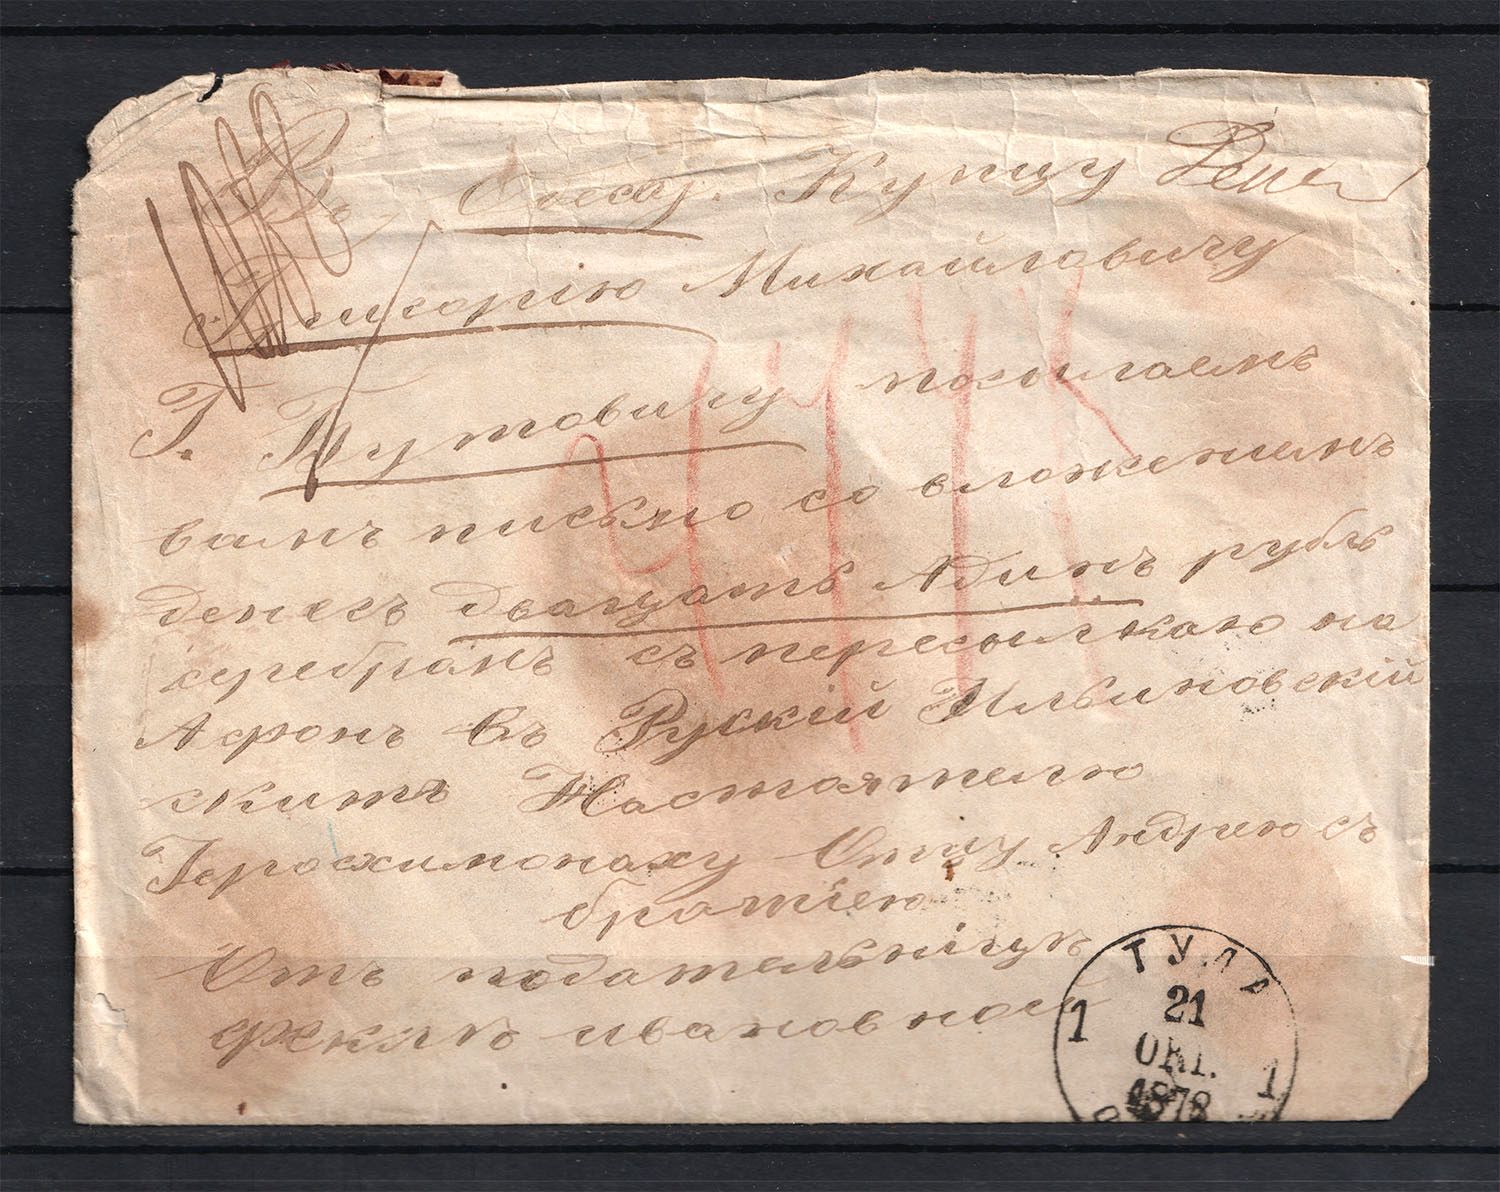 Въ Одессу. Купцу
Григорію Михайловичу
Г. Бутовичу посылаемъ
вамъ письмо со вложениемъ
денегъ двадцать Адинъ рубль
серебромъ съ пересылкаю на
Афонъ въ Рускій Ильиновскій
скитъ Настоятелю
Іеросхимонаху Отцу Андрею съ
братіею
Отъ подательніцы
Феклы ивановной
ТУЛА
21
ОКТ.
1878
1 1